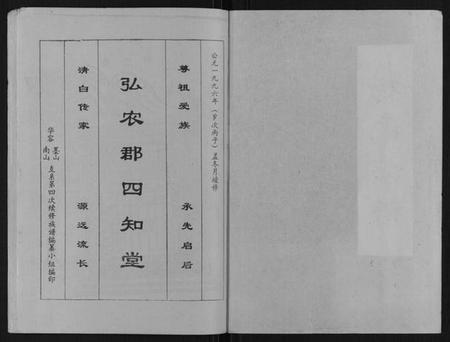 公元一九九六年(岁次丙子)孟冬月续修
尊祖爱族 承先启后
弘农郡四知堂
清白传家 源远流长
华容 墨山
南山 支系第四次续修族谱编纂小组编印